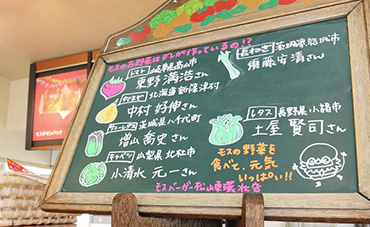 モスのお野菜はダレが作っているの!?
トマト 岐阜県高山市
東野 満浩さん
たまねぎ 北海道新篠津村
中村 好伸さん
グリーンリーフ 茨城県八千代町
増山 喬史さん
キャベツ 山梨県 北杜市
小清水 元一さん
長ねぎ 茨城県 坂東市
須藤 安清さん
レタス 長野県小諸市
土屋 賢司さん
モスの野菜を
食べて、元気
いっぱい!!
モスバーガー松山東環状店